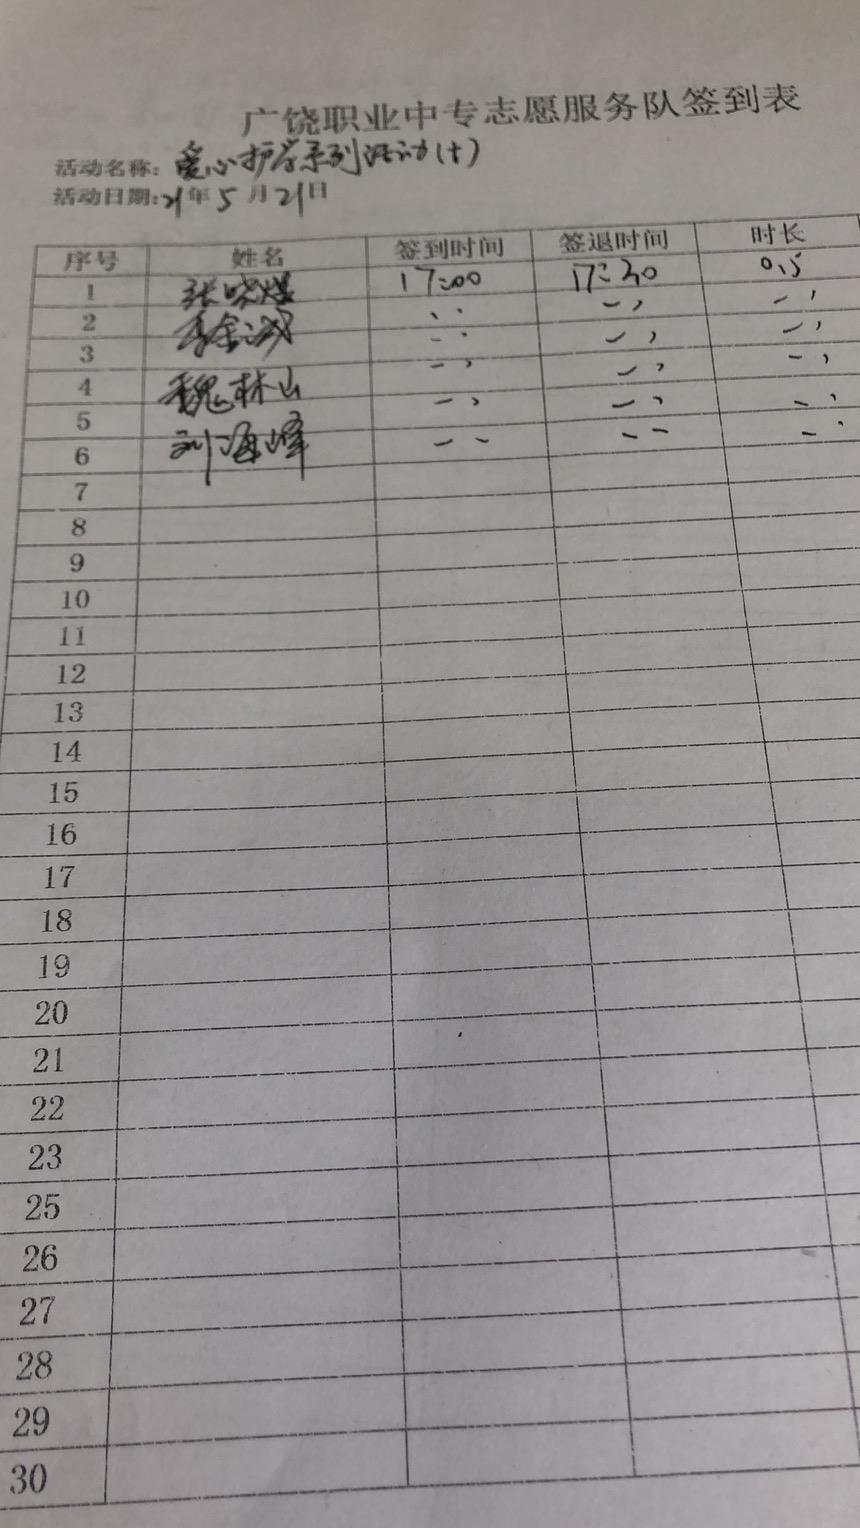 广饶职业中专志愿服务队签到表
活动名称:爱心护学系列活动(十)
活动日期:21年5月21日
序号 姓名 签到时间 签退时间 时长
1 张晓煜 17:00 17:30 0.5
2 李金诚
3
4 魏林山
5
6 刘海峰
7
8
9
10
11
12
13
14
15
16
17
18
19
20
21
22
23
25
26
27
28
29
30